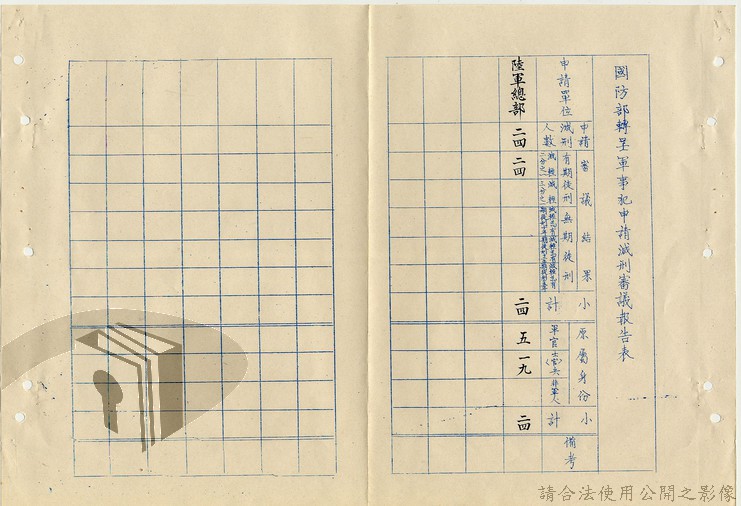 國防部轉呈軍事犯申請減刑審議報告表
申請單位
申請減刑人數
審議結果
有期徒刑
減輕二分之一
減輕三分之一
無期徒刑
小計
原屬身份
軍官
士(官)兵
非軍人
小計
備考
陸軍總部
二四
二四
二四
五
一九
二四
請合法使用公開之影像